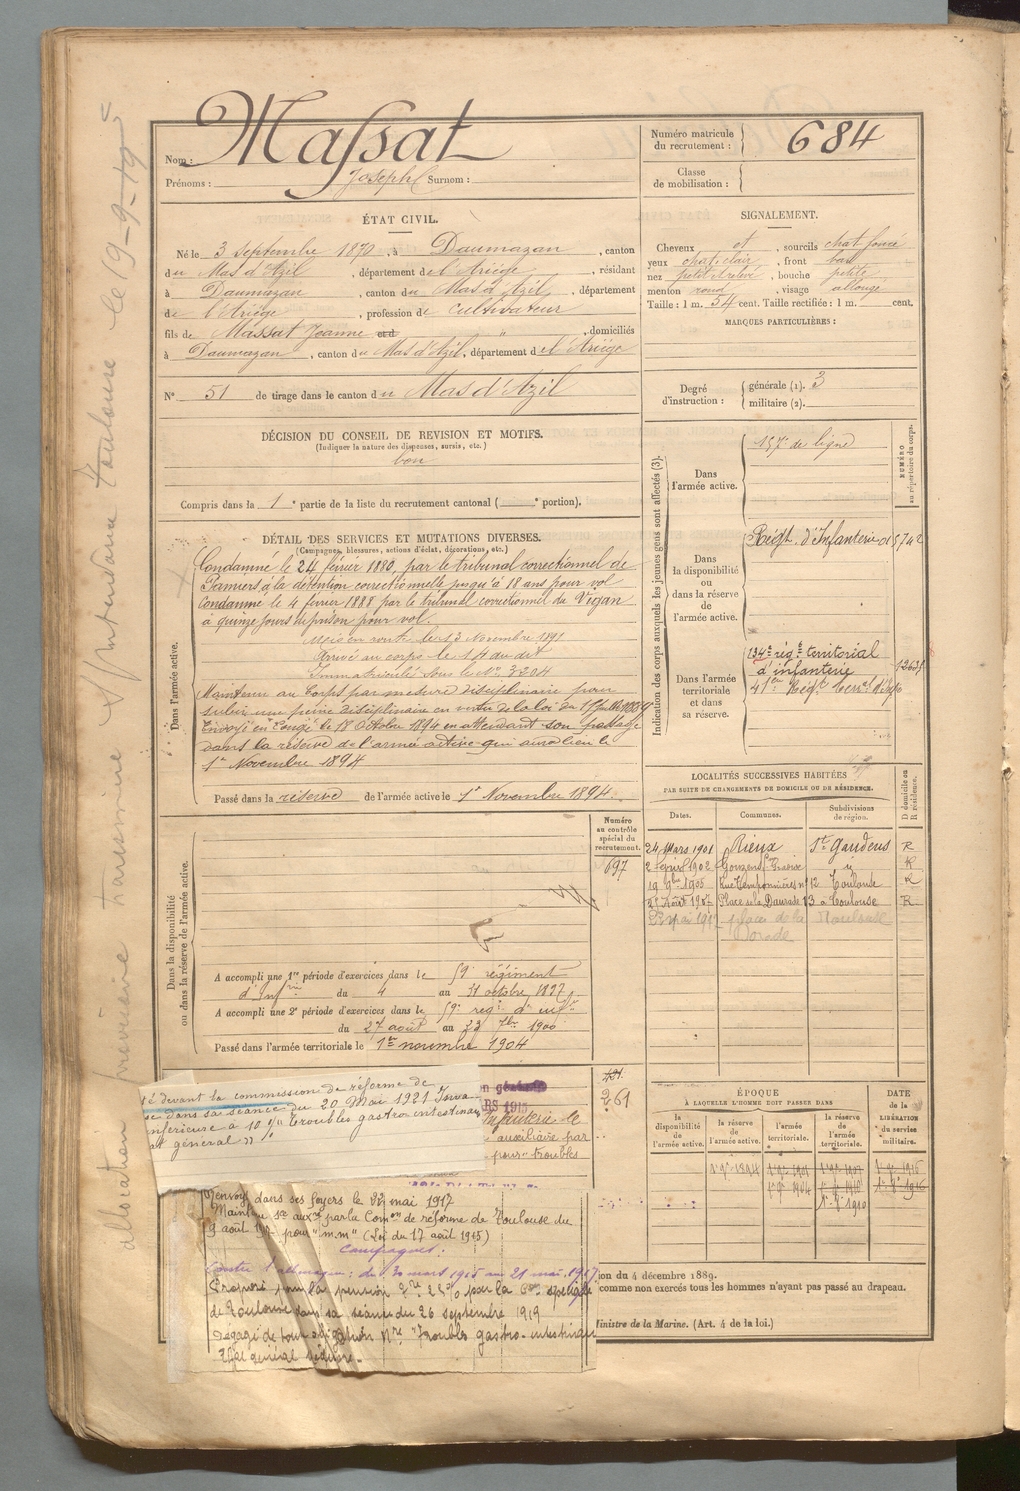 Nom : Massat
Prénoms : Joseph Surnom :
Numéro matricule du recrutement : 684
Classe de mobilisation :
ÉTAT CIVIL.
Né le 3 septembre 1870, à Daumazan, canton
du Mas d'Azil, département de l'Ariège, résidant
à Daumazan, canton du Mas d'Azil, département
de l'Ariège, profession de cultivateur
fils de Massat Jeanne et d " , domiciliés
à Daumazan, canton du Mas d'Azil, département de l'Ariège
N° 51 de tirage dans le canton du Mas d'Azil
SIGNALEMENT.
Cheveux et , sourcils chat. foncé
yeux chat. clair , front bas
nez , bouche petite
menton rond , visage allongé
Taille : 1 m. 54 cent. Taille rectifiée : 1 m. cent.
MARQUES PARTICULIÈRES :
Degré d'instruction : générale (1). 3
militaire (2).
DÉCISION DU CONSEIL DE REVISION ET MOTIFS.
(Indiquer la nature des dispenses, sursis, etc.)
bon
Compris dans la 1e partie de la liste du recrutement cantonal ( e portion).
DÉTAIL DES SERVICES ET MUTATIONS DIVERSES.
(Campagnes, blessures, actions d'éclat, décorations, etc.)
Dans l'armée active.
Condamné le 24 février 1880, par le tribunal correctionnel de
Pamiers à la détention correctionnelle jusqu'à 18 ans pour vol
Condamné le 4 février 1888 par le tribunal correctionnel du Vigan
à quinze jours de prison pour vol.
Mis en route le 13 Novembre 1891
Arrivé au corps le 14 du dit
Immatriculé sous le N° 3204
Maintenu au Corps par mesure disciplinaire pour
subir une peine disciplinaire en vertu de la loi du
Envoyé en Congé le 18 Octobre 1894 en attendant son passage
dans la réserve de l'armée active qui aura lieu le
1er Novembre 1894
Passé dans la réserve de l'armée active le 1er Novembre 1894.
Indication des corps auxquels les jeunes gens sont affectés (3).
NUMÉRO au répertoire du corps.
Dans l'armée active.
157e de ligne
Dans la disponibilité ou dans la réserve de l'armée active.
Régt. d'Infanterie
Dans l'armée territoriale et dans sa réserve.
134e régt territorial
d'infanterie
LOCALITÉS SUCCESSIVES HABITÉES
PAR SUITE DE CHANGEMENTS DE DOMICILE OU DE RÉSIDENCE.
Dates. Communes. Subdivisions de région. D domicile ou R résidence.
24 Mars 1901 Rieux St Gaudens R
1902 R
19 9bre 1905 12 Toulouse R
Août 1907 Place de la Daurade 13 à Toulouse R
place de la Toulouse
Dans la disponibilité ou dans la réserve de l'armée active.
Numéro au contrôle spécial du recrutement.
697
A accompli une 1re période d'exercices dans le 59e régiment
d'Infrie du 4 au 31 octobre 1897
A accompli une 2e période d'exercices dans le 59e régt d'infie
du 27 août au 23 7bre 1900
Passé dans l'armée territoriale le 1er novembre 1904
261
devant la commission de réforme de
dans sa séance du 20 Mai 1921
inférieure à 10 % troubles gastro intestinaux
état général
infanterie le
auxiliaire par
pour troubles
Renvoyé dans ses foyers le 22 mai 1917
Maintenu sce auxre par la Comon de réforme de Toulouse du
9 août 1917 pour "m.m" (Loi du 17 août 1915)
Campagnes.
Contre l'allemagne : du 30 mars 1915 au 21 mai 1917
Proposé pour la pension
de Toulouse dans sa séance du 26 septembre 1919
Dégagé de toute obligation Mre "Troubles gastro-intestinaux
Etat général
ÉPOQUE
À LAQUELLE L'HOMME DOIT PASSER DANS
DATE de la LIBÉRATION du service militaire.
la disponibilité de l'armée active. la réserve de l'armée active. l'armée territoriale. la réserve de l'armée territoriale.
on du 4 décembre 1889.
comme non exercés tous les hommes n'ayant pas passé au drapeau.
Ministre de la Marine. (Art. 4 de la loi.)
allocation provisoire transmise Intendance Toulouse le 19-9-19